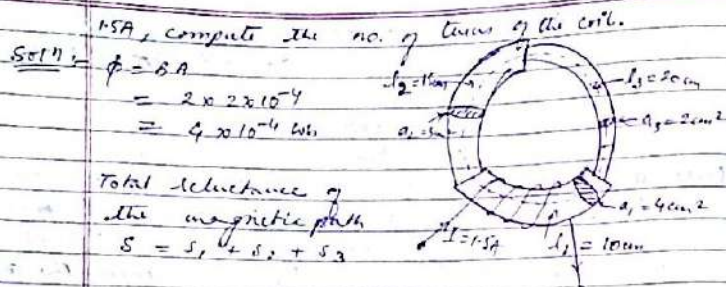 1.5A, compute the no. of turns of the coil.
Soln:- φ = BA
= 2 x 2x10⁻⁴
= 4 x10⁻⁴ wb
Total reluctance of
the magnetic path
S = S₁ + S₂ + S₃
l₃ = 20cm
a₃ = 2cm²
a₁ = 4cm²
I = 1.5A
l₁ = 10cm